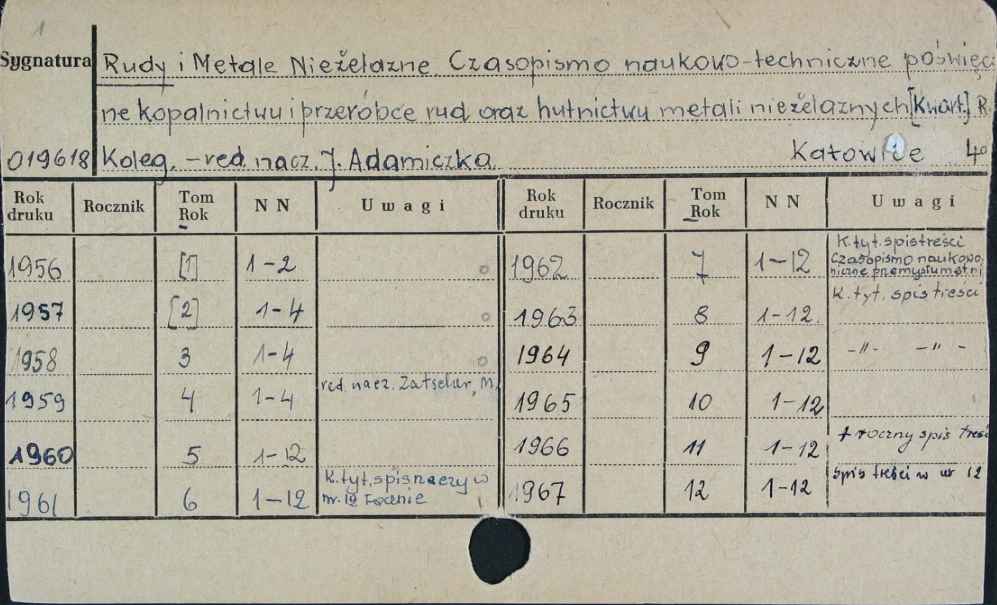 1
Sygnatura Rudy i Metale Nieżelazne. Czasopismo naukowo-techniczne poświęco
ne kopalnictwu i przeróbce rud oraz hutnictwu metali nieżelaznych [Kwart.] R.
019618 Koleg. – red. nacz. J. Adamiczka. Katowice 4o
Rok druku Rocznik Tom Rok N N Uwagi Rok druku Rocznik Tom Rok N N Uwagi
1956 [1] 1-2 1962 7 1-12 K. tyt. spis treści
Czasopismo naukowo
niczne przemysłu
1957 [2] 1-4 1963 8 1-12. K. tyt. spis treści
1958 3 1-4 1964 9 1-12 -"- -"-
1959 4 1-4 red. nacz. M. 1965 10 1-12
1960 5 1-12 1966 11 1-12 + roczny spis treści
1961 6 1-12 K. tyt. spis
nr. 12 1967 12 1-12 spis treści w nr 12